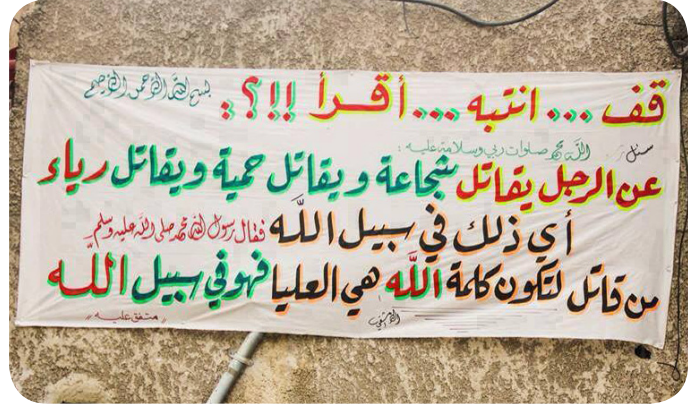 بسم الله الرحمن الرحيم
قف ... انتبه ... أقرأ !!؟:
سئل رسول الله محمد صلوات ربي وسلامة عليه :
عن الرجل يقاتل شجاعة ويقاتل حمية ويقاتل رياء
أي ذلك في سبيل الله فقال رسول الله محمد صلى الله عليه وسلم
من قاتل لتكون كلمة الله هي العليا فهو في سبيل الله
"متفق عليه"